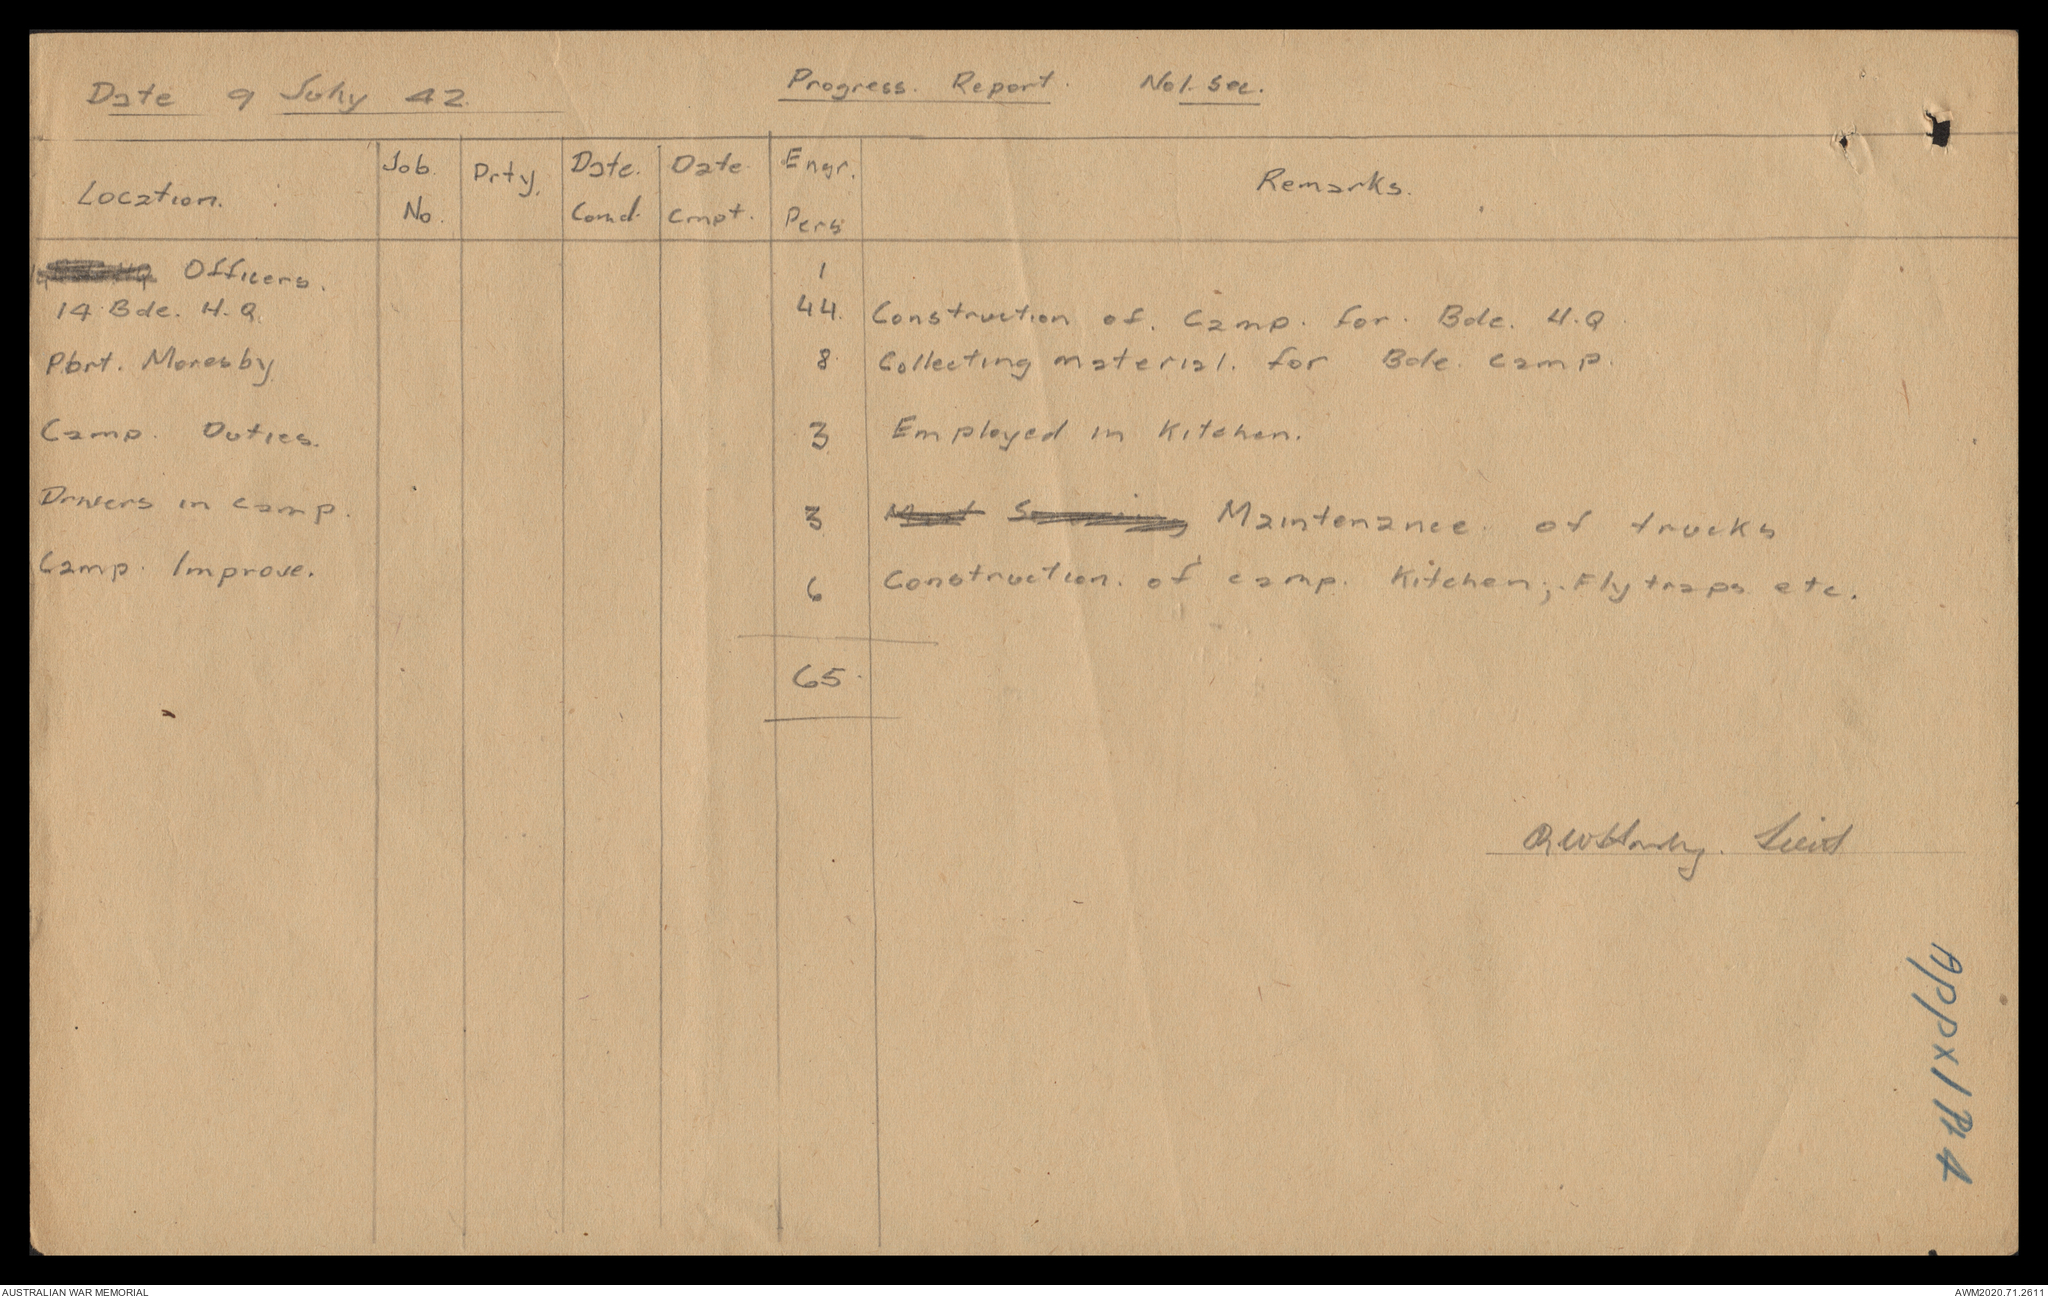 Date 9 July 42. Progress. Report. No1. Sec.
Location. Job No. Prty. Date. Comd. Date Cmpt. Engr. Pers Remarks.
Officers. 1
14 Bde. H.Q. 44. Construction of. Camp. for. Bde. H.Q.
Port. Moresby 8 Collecting material. for Bde. camp.
Camp. Duties. 3 Employed in Kitchen.
Drivers in camp. 3 Maintenance of trucks
Camp. Improve. 6 Construction. of camp. Kitchen; Fly traps etc.
65.
Lieut
Appx 1 Pt 4
AUSTRALIAN WAR MEMORIAL AWM2020.71.2611